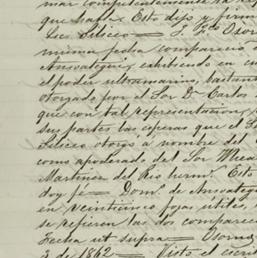 mar competentemente
que sabia. Esto dijo y firm
Leo. Siliceo
misma fecha compareció d
Ansoategui, exhibiendo en cu
el poder ultramarino, bastant
otorgado por el Sor. Dn. Carlos
que con tal representacion,
sus partes las esperas que el S
Siliceo otorgó a nombre del
como apoderado del Sor
Martinez del Rio herms. Esto
doy fé Domo. de Ansoateg
en veinticinco fojas utiles,
se refieren las dos comparece
Fecha ut supra
de 1862 Visto el escrit